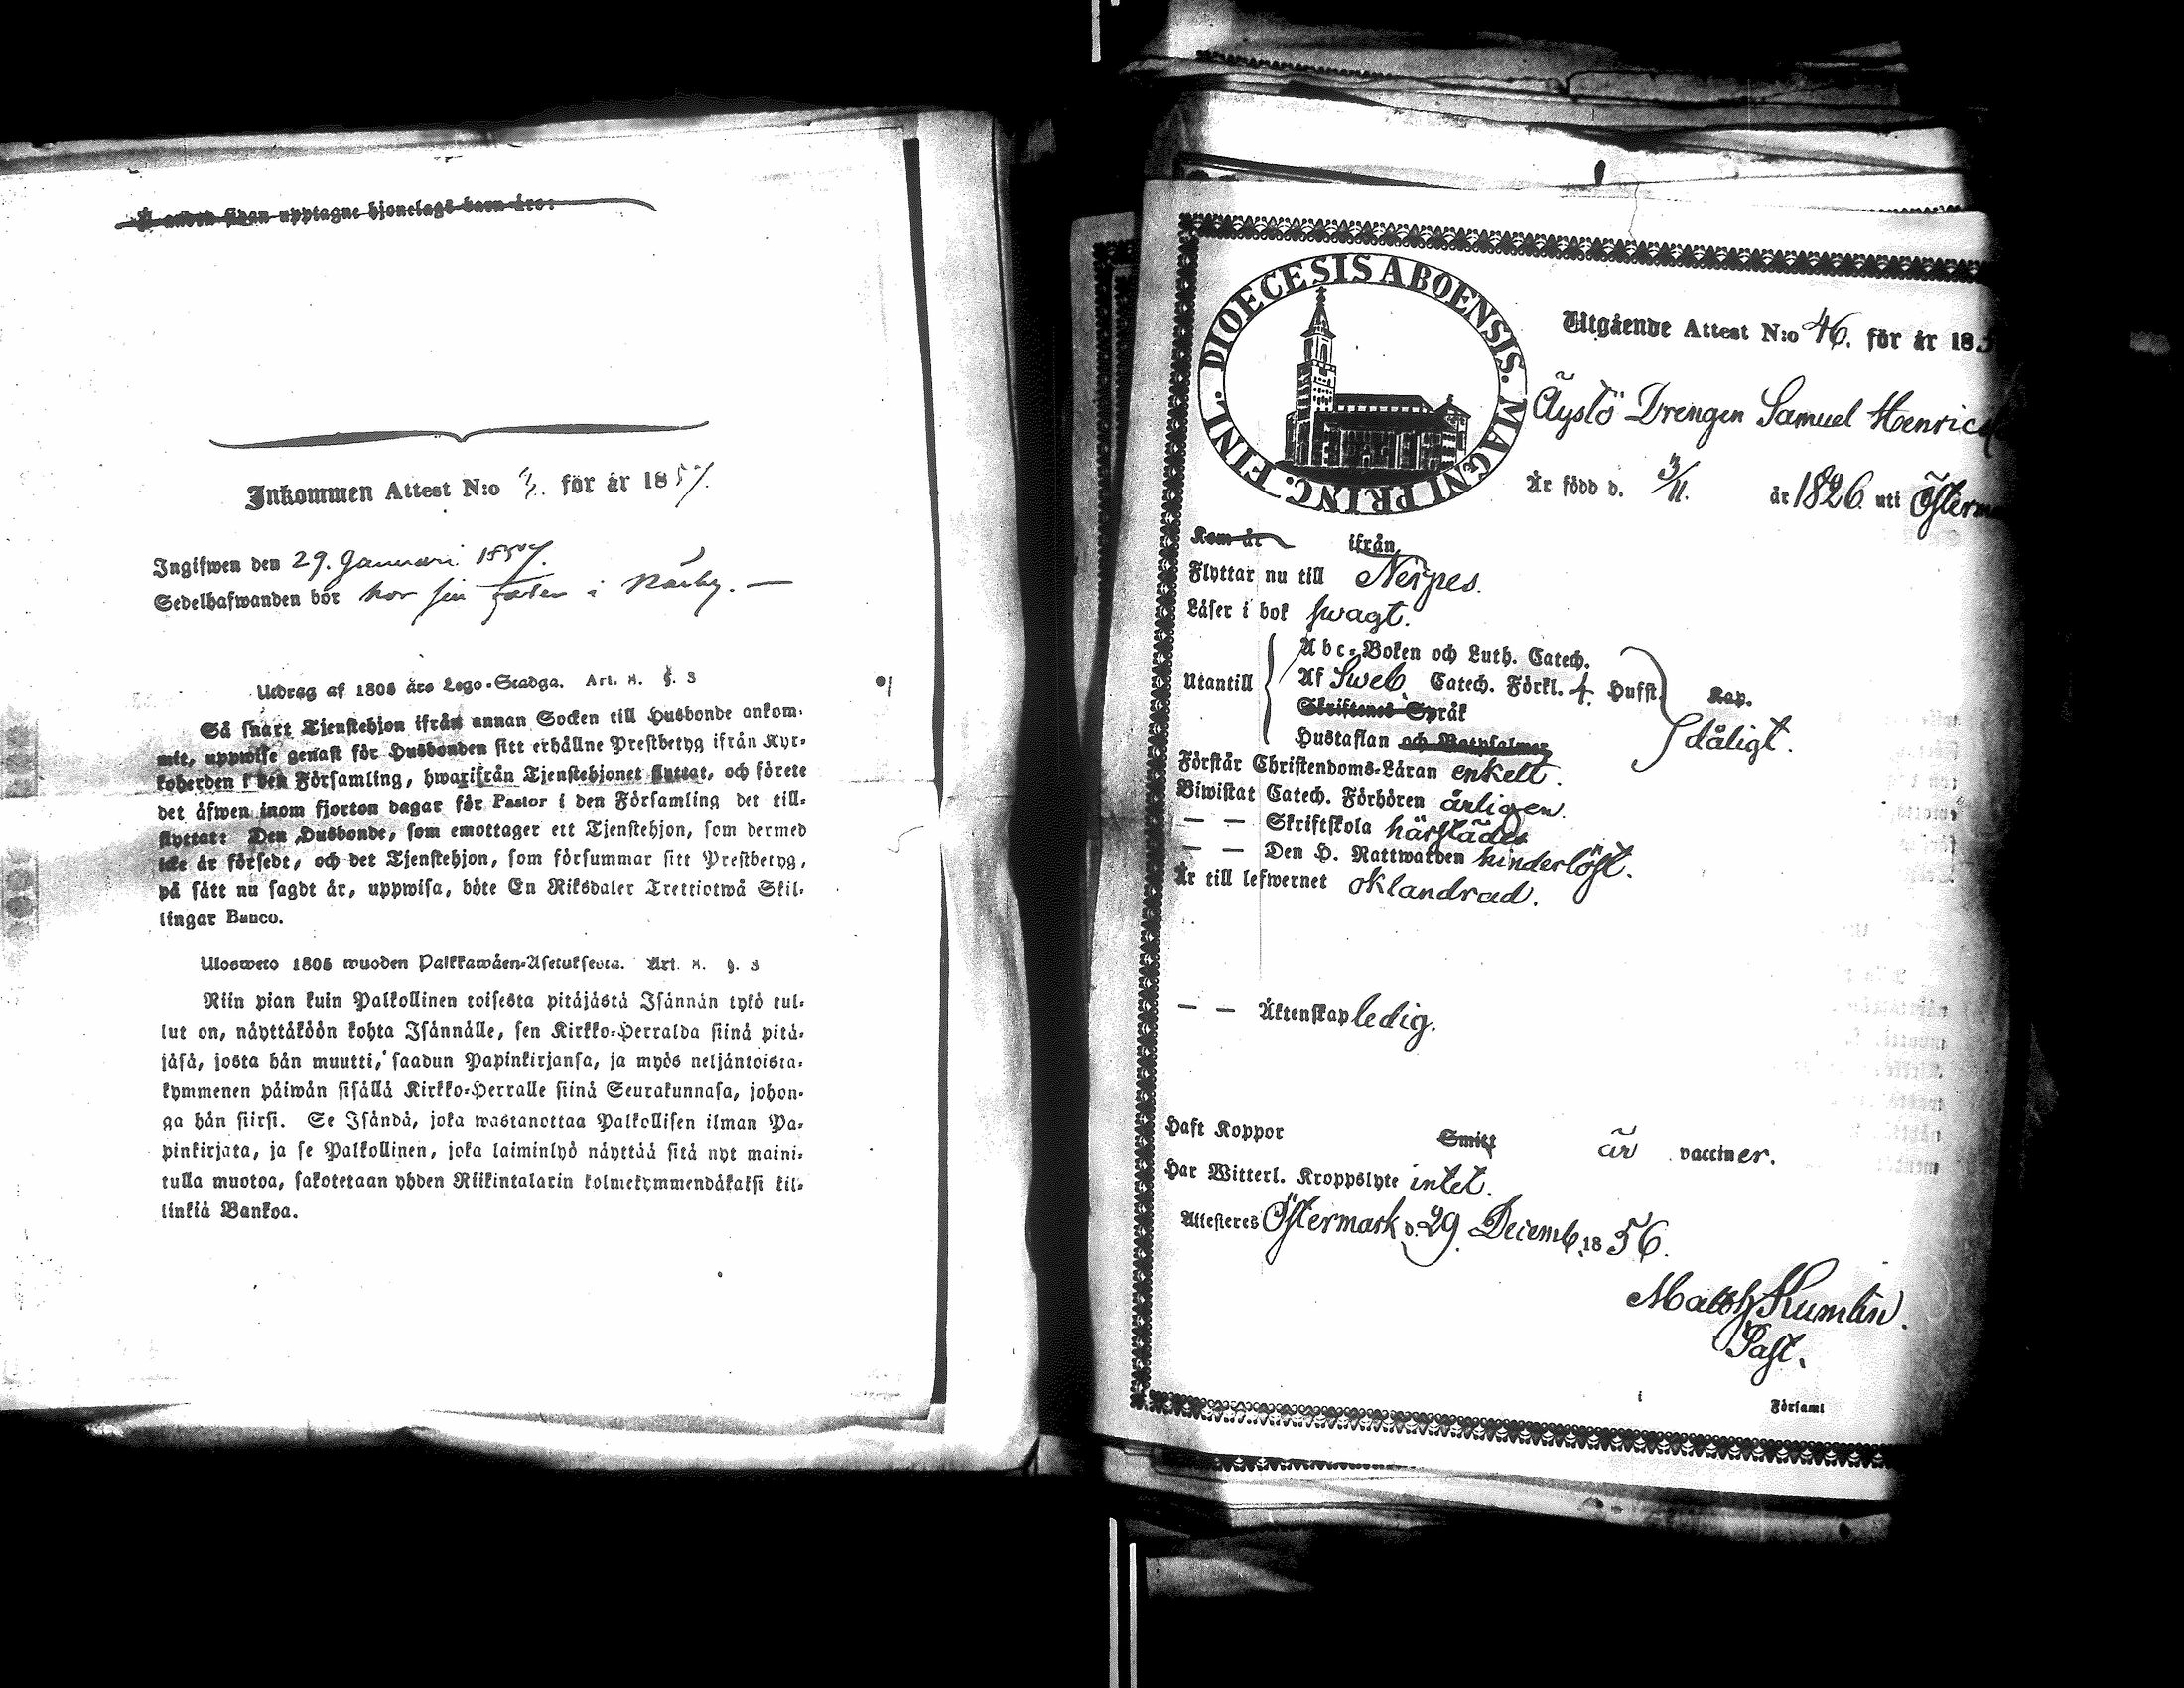 Å andra sidan upptagne hjonelags barn äro:
Inkommen Attest N:o 3. för år 1857.
Ingifwen den 29. Januari 1857.
Sedelhafwanden bör hos sin fader i Närby. —
Utdrag af 1805 års Lego-Stadga. Art. 8. §. 3
Så snart Tjenstehjon ifrån annan Socken till Husbonde ankom-
mit, uppwise genast för Husbonden sitt erhållne Prestbetyg ifrån Kyr-
koherden i den Församling, hwarifrån Tjenstehjonet flyttat, och förete
det äfwen inom fjorton dagar för Pastor i den Församling det till-
flyttat: Den Husbonde, som emottager ett Tjenstehjon, som dermed
icke är försedt, och det Tjenstehjon, som försummar sitt Prestbetyg,
på sätt nu sagdt är, uppwisa, böte En Riksdaler Trettiotwå Skil-
lingar Banco.
Ulosweto 1805 wuoden Palkkawäen-Asetuksesta. Art. 8. §. 3
Niin pian kuin Palkollinen toisesta pitäjästä Isännän tykö tul-
lut on, näyttäköön kohta Isännälle, sen Kirkko-Herralda siinä pitä-
jäsä, josta hän muutti, saadun Papinkirjansa, ja myös neljäntoista-
kymmenen päiwän sisällä Kirkko-Herralle siinä Seurakunnasa, johon-
ga hän siirsi. Se Isändä, joka wastanottaa Palkollisen ilman Pa-
pinkirjata, ja se Palkollinen, joka laiminlyö näyttää sitä nyt maini-
tulla muotoa, sakotetaan yhden Riikintalarin kolmekymmendäkaksi kil-
linkiä Bankoa.
DIOECESIS ABOENSIS. MAGNI PRINC. FINL.
Utgående Attest N:o 46. för år 185
Äystö Drengen Samuel Henrics
Är född d. 3/11. år 1826. uti Österm
Kom år ifrån
Flyttar nu till Nerpes.
Läser i bok swagt.
Utantill
Abc-Boken och Luth. Catech.
Af Sweb. Catech. Förkl. 4. Hufst. Kap.
Skriftenes Språk
Hustaflan och Botpsalmer
dåligt.
Förstår Christendoms-Läran enkelt.
Biwistat Catech. Förhören årligen.
— — Skriftskola härstädes
— — Den H. Nattwarden hinderlöst.
Är till lefwernet oklandrad.
— — Äktenskap ledig.
Haft Koppor Smitt är vacciner.
Har Witterl. Kroppslyte intet.
Attesteres Östermark d. 29. Decemb. 1856.
Matth Kumlin.
Past.
i Församl